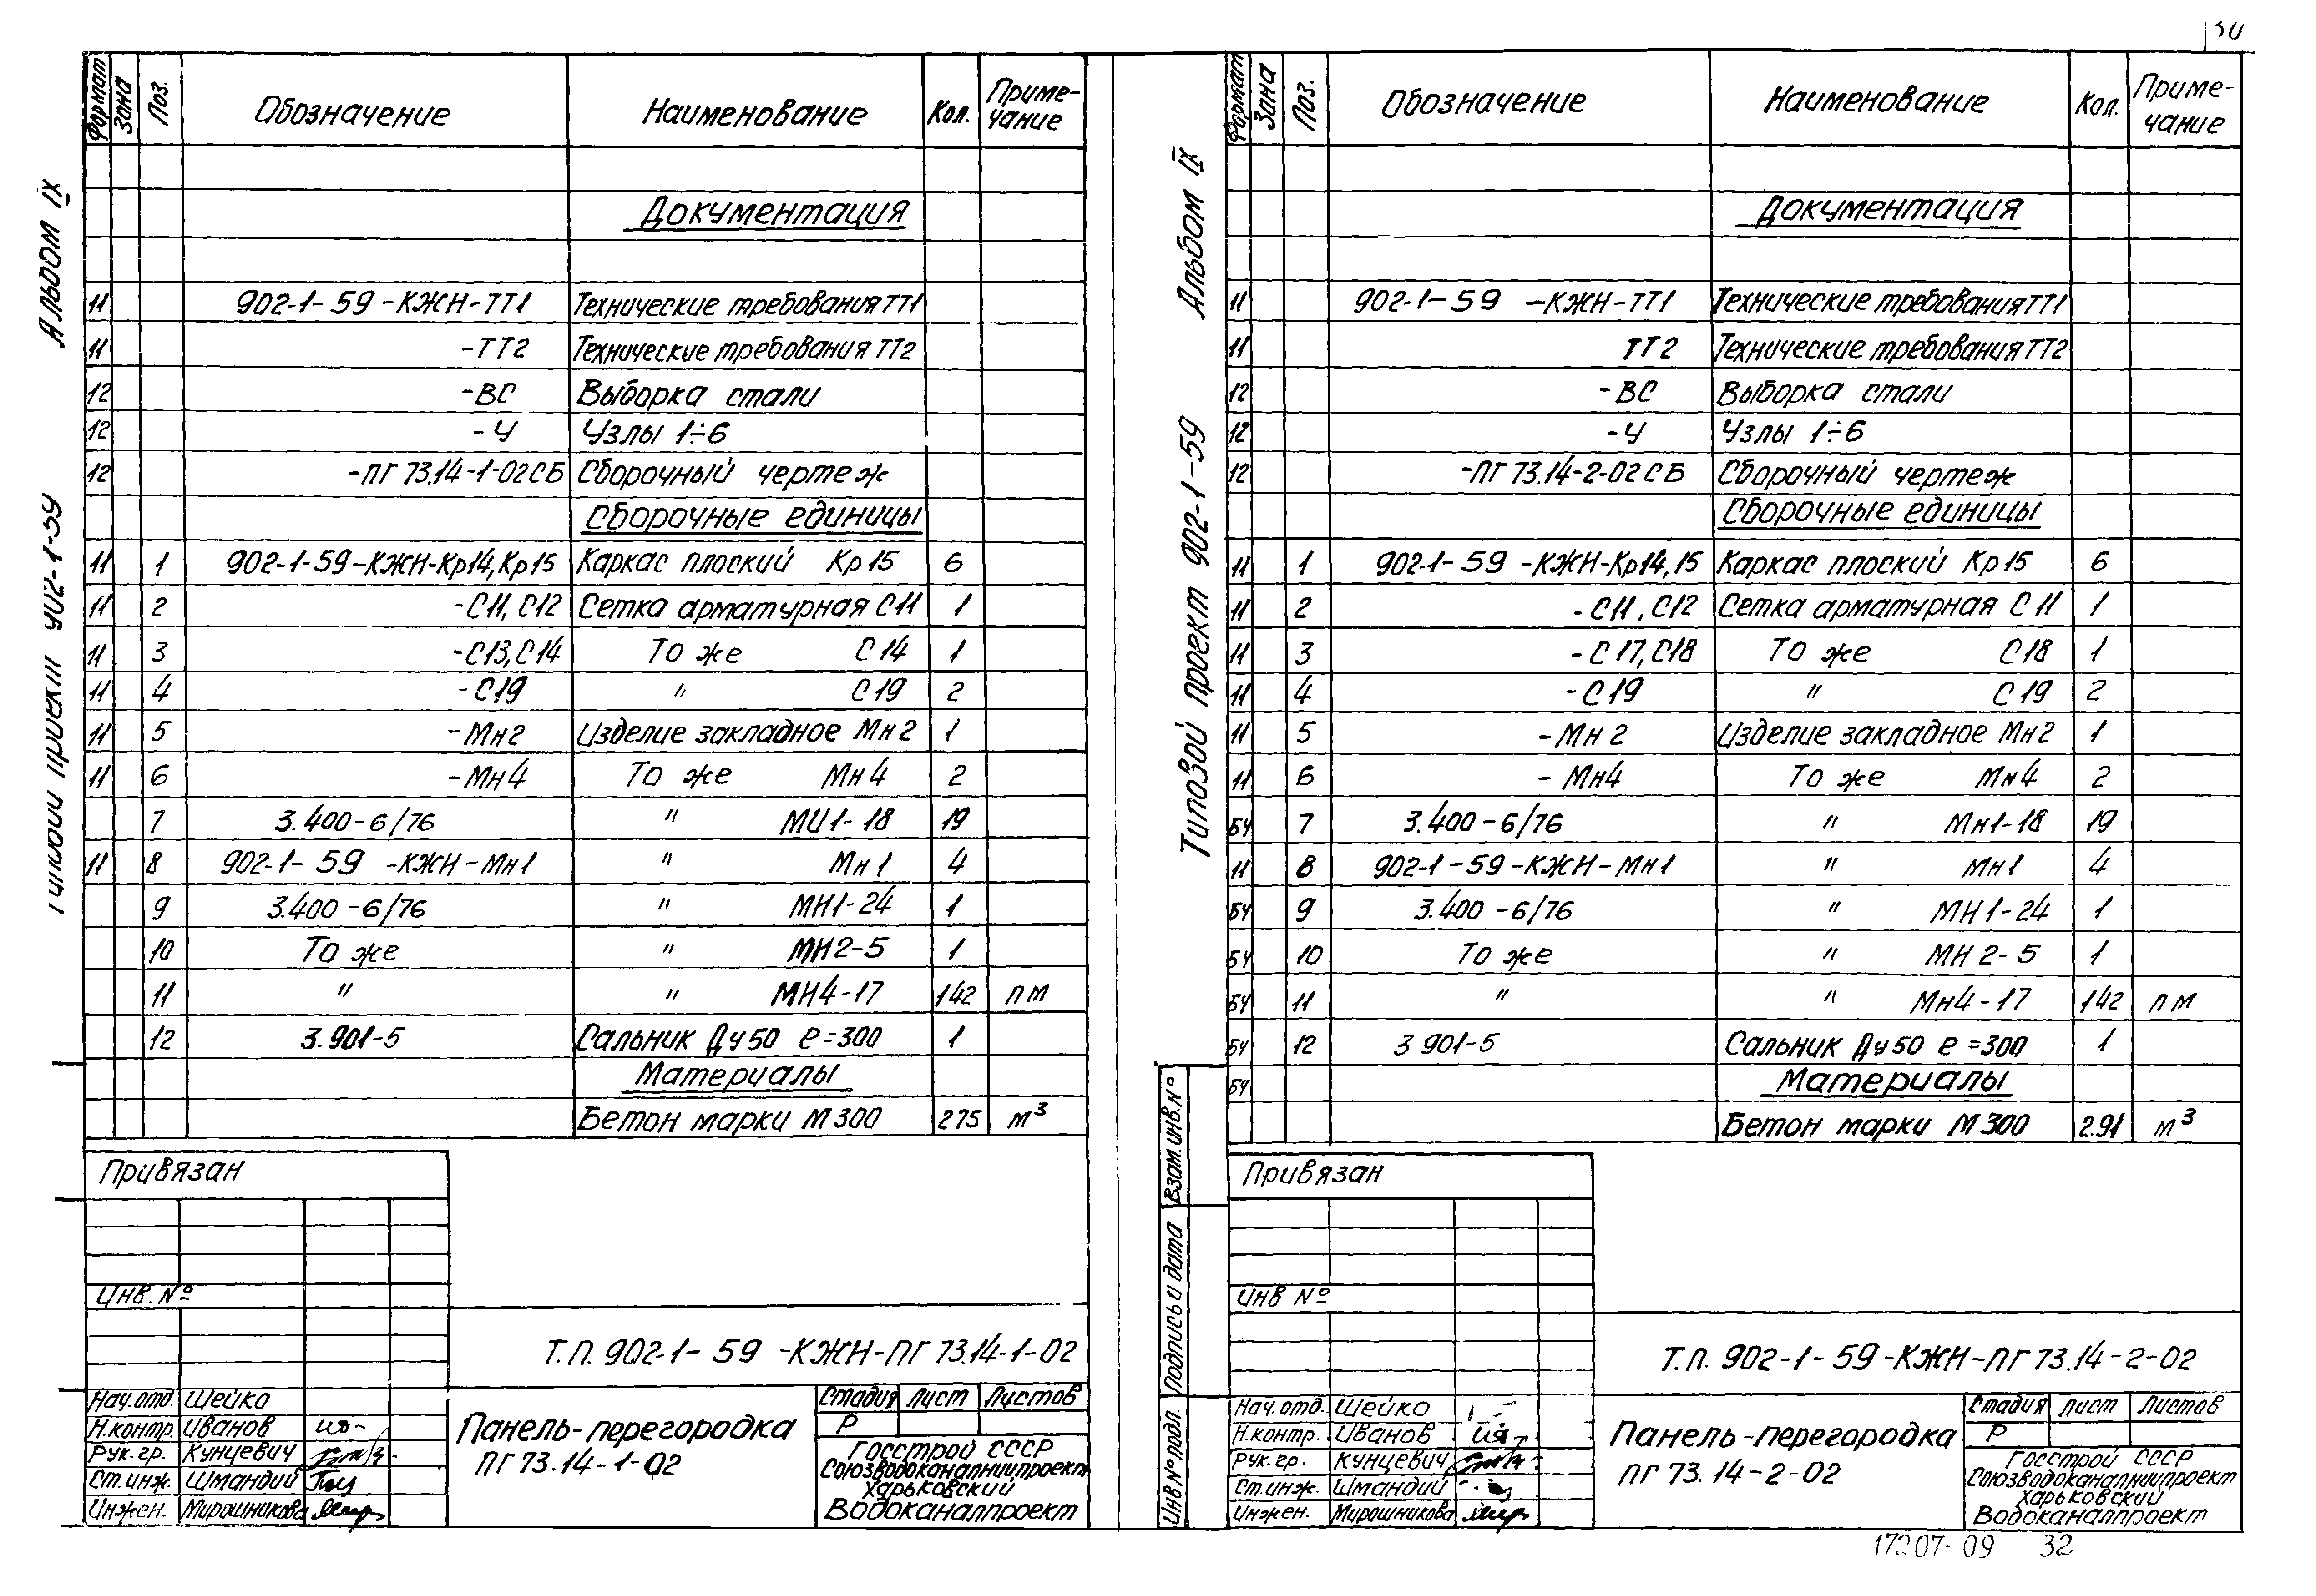 30
Альбом IX
Формат Зона Поз. Обозначение Наименование Кол. Приме-
чание
Документация
11 902-1-59-КЖН-ТТ1 Технические требования ТТ1
11 -ТТ2 Технические требования ТТ2
12 -ВС Выборка стали
12 -У Узлы 1÷6
12 -ПГ 73.14-1-02СБ Сборочный чертеж
Сборочные единицы
11 1 902-1-59-КЖН-Кр14, Кр15 Каркас плоский Кр15 6
11 2 -С11, С12 Сетка арматурная С11 1
11 3 -С13, С14 То же С14 1
11 4 -С19 " С19 2
11 5 -Мн2 Изделие закладное Мн2 1
11 6 -Мн4 То же Мн4 2
7 3.400-6/76 " МИ1-18 19
11 8 902-1-59-КЖН-Мн1 " Мн1 4
9 3.400-6/76 " МН1-24 1
10 То же " МН2-5 1
11 " " МН4-17 142 пм
12 3.901-5 Сальник Ду50 е=300 1
Материалы
Бетон марки М300 275 м³
Привязан
Инв. №
Т.П. 902-1-59-КЖН-ПГ 73.14-1-02
Нач.отд. Шейко
Н.контр. Иванов
Рук.гр. Кунцевич
Ст.инж. Шмандий
Инжен. Мирошникова
Панель-перегородка
ПГ 73.14-1-02
Стадия Лист Листов
Р
Госстрой СССР
Союзводоканалниипроект
Харьковский
Водоканалпроект
Альбом IX
Типовой проект 902-1-59
Формат Зона Поз. Обозначение Наименование Кол. Приме-
чание
Документация
11 902-1-59-КЖН-ТТ1 Технические требования ТТ1
11 ТТ2 Технические требования ТТ2
12 -ВС Выборка стали
12 -У Узлы 1÷6
12 -ПГ 73.14-2-02СБ Сборочный чертеж
Сборочные единицы
11 1 902-1-59-КЖН-Кр14, 15 Каркас плоский Кр15 6
11 2 -С11, С12 Сетка арматурная С11 1
11 3 -С17, С18 То же С18 1
11 4 -С19 " С19 2
11 5 -Мн2 Изделие закладное Мн2 1
11 6 -Мн4 То же Мн4 2
БЧ 7 3.400-6/76 " Мн1-18 19
11 8 902-1-59-КЖН-Мн1 " Мн1 4
БЧ 9 3.400-6/76 " МН1-24 1
БЧ 10 То же " МН2-5 1
БЧ 11 " " Мн4-17 142 пм
БЧ 12 3 901-5 Сальник Ду50 е=300 1
БЧ Материалы
Бетон марки М300 2.91 м³
Взам. инв. №
Подпись и дата
Инв № подл.
Привязан
Инв №
Т.П. 902-1-59-КЖН-ПГ 73.14-2-02
Нач. отд. Шейко
Н.контр. Иванов
Рук.гр. Кунцевич
Ст.инж. Шмандий
Инжен. Мирошникова
Панель-перегородка
ПГ 73.14-2-02
Стадия Лист Листов
Р
Госстрой СССР
Союзводоканалниипроект
Харьковский
Водоканалпроект
17207-09 32